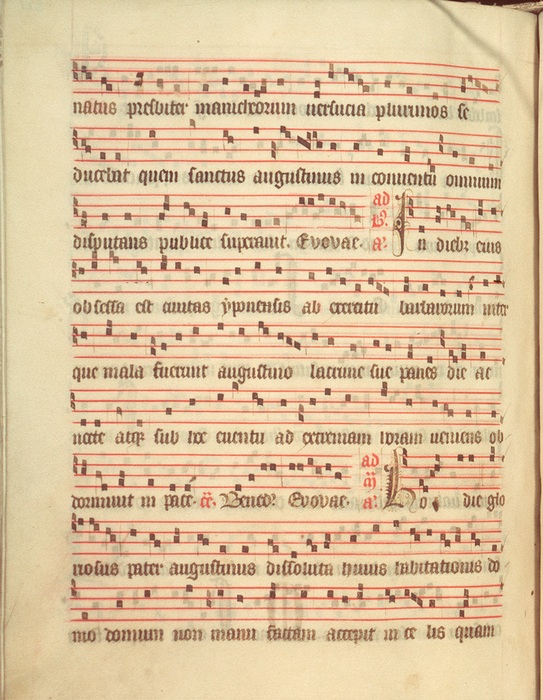 natus presbiter manicheorum uersucia plurimos se
ducebat quem sanctus augustinus in conuentu omnium
disputans publice superauit. Evovae. ad B. a. In diebz eius
obsessa est ciuitas yponensis ab exercitu barbarorum inter
que mala fuerunt augustino lacrime sue panes die ac
nocte atqz sub hoc euentu ad extremam horam ueniens ob
dormiuit in pace. Bened. Evovae. ad m a. Ho die glo
riosus pater augustinus dissoluta huius habitationis do
mo domum non manu factam accepit in ce lis quam